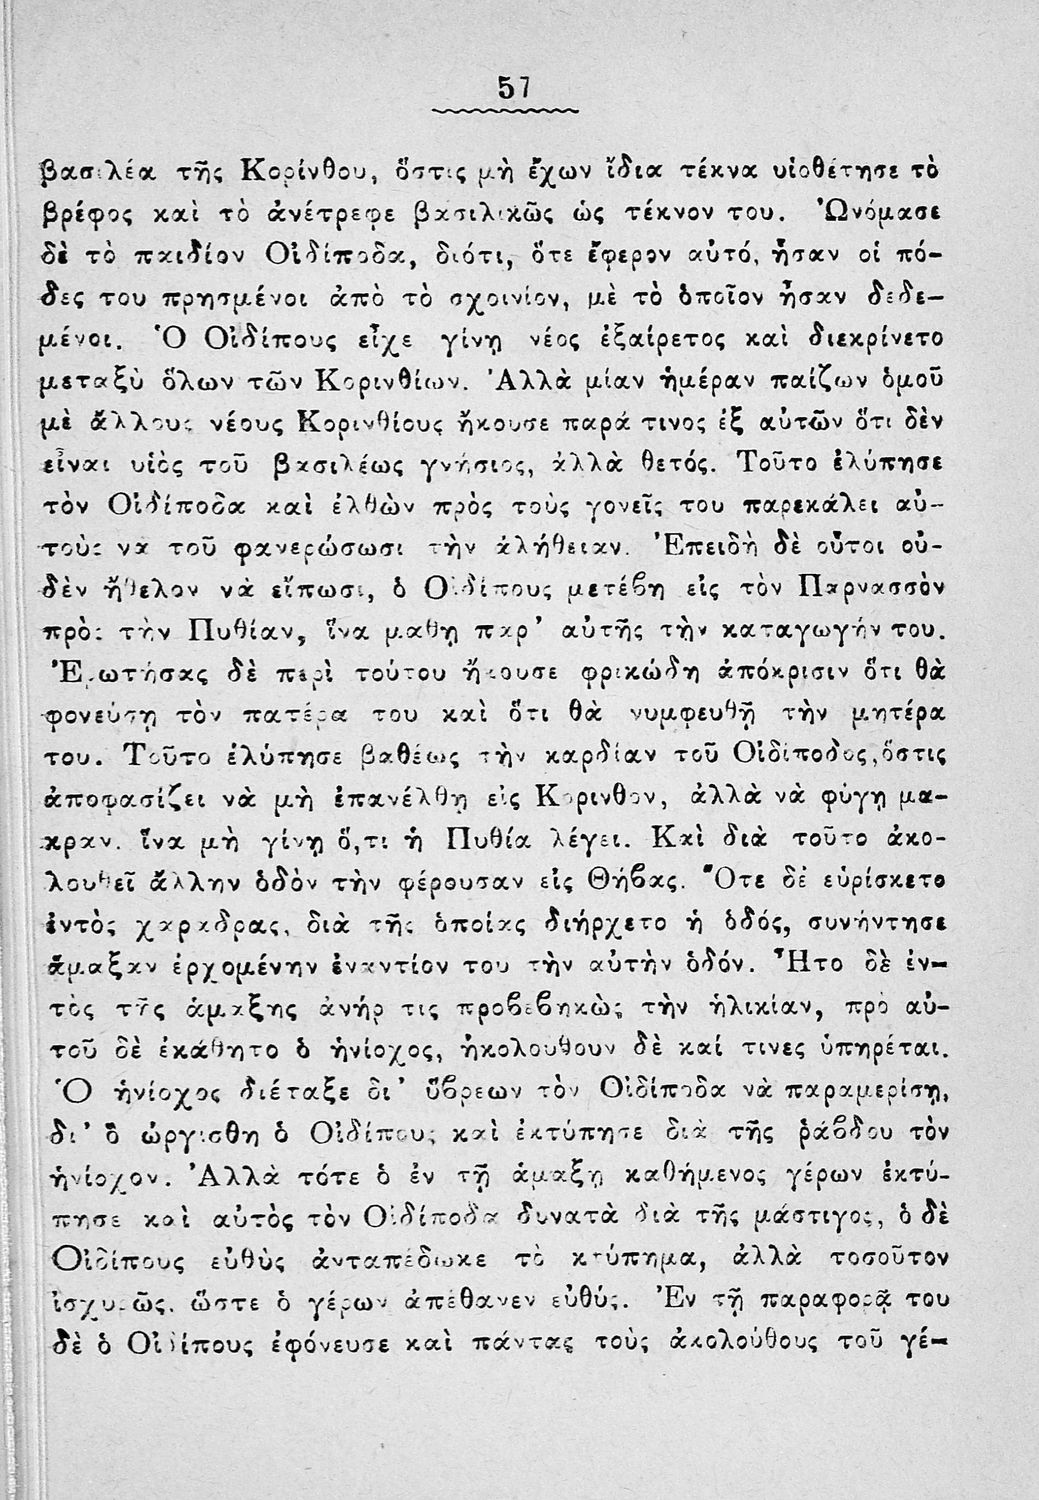 57
βασιλέα τῆς Κορίνθου, ὅστις μὴ ἔχων ἴδια τέκνα υἱοθέτησε τὸ
βρέφος καὶ τὸ ἀνέτρεφε βασιλικῶς ὡς τέκνον του. Ὠνόμασε
δὲ τὸ παιδίον Οἰδίποδα, διότι, ὅτε ἔφερον αὐτό, ἦσαν οἱ πό-
δες του πρησμένοι ἀπὸ τὸ σχοινίον, μὲ τὸ ὁποῖον ἦσαν δεδε-
μένοι. Ὁ Οἰδίπους εἶχε γίνῃ νέος ἐξαίρετος καὶ διεκρίνετο
μεταξὺ ὅλων τῶν Κορινθίων. Ἀλλὰ μίαν ἡμέραν παίζων ὁμοῦ
μὲ ἄλλους νέους Κορινθίους ἤκουσε παρά τινος ἐξ αὐτῶν ὅτι δὲν
εἶναι υἱὸς τοῦ βασιλέως γνήσιος, ἀλλὰ θετός. Τοῦτο ἐλύπησε
τὸν Οἰδίποδα καὶ ἐλθὼν πρὸς τοὺς γονεῖς του παρεκάλει αὐ-
τοὺς να τοῦ φανερώσωσι τὴν ἀλήθειαν. Ἐπειδὴ δὲ οὗτοι οὐ-
δὲν ἤθελον νὰ εἴπωσι, ὁ Οἰδίπους μετέβη εἰς τὸν Παρνασσὸν
πρὸς τὴν Πυθίαν, ἵνα μαθῃ παρ' αὐτῆς τὴν καταγωγήν του.
Ἐρωτήσας δὲ περὶ τούτου ἤκουσε φρικώδη ἀπόκρισιν ὅτι θὰ
φονεύσῃ τὸν πατέρα του καὶ ὅτι θὰ νυμφευθῇ τὴν μητέρα
του. Τοῦτο ἐλύπησε βαθέως τὴν καρδίαν τοῦ Οἰδίποδος, ὅστις
ἀποφασίζει νὰ μὴ ἐπανέλθῃ εἰς Κορινθον, ἀλλὰ νὰ φύγῃ μα-
κραν. ἵνα μὴ γίνῃ ὅ,τι ἡ Πυθία λέγει. Καὶ διὰ τοῦτο ἀκο-
λουθεῖ ἄλλην ὁδὸν τὴν φέρουσαν εἰς Θήβας. Ὅτε δὲ εὑρίσκετο
ἐντὸς χαραδρας, διὰ τῆς ὁποίας διήρχετο ἡ ὁδός, συνήντησε
ἅμαξαν ἐρχομένην ἐναντίον του τὴν αὐτὴν ὁδόν. Ἦτο δὲ ἐν-
τὸς τῆς ἁμαξης ἀνήρ τις προβεβηκὼς τὴν ἡλικίαν, πρὸ αὐ-
τοῦ δὲ ἐκάθητο ὁ ἡνίοχος, ἠκολουθουν δὲ καί τινες ὑπηρέται.
Ὁ ἡνίοχος διέταξε δι' ὕβρεων τὸν Οἰδίποδα νὰ παραμερίσῃ,
δι' ὃ ὠργισθη ὁ Οἰδίπους καὶ ἐκτύπησε διὰ τῆς ῥάβδου τὸν
ἡνίοχον. Ἀλλὰ τότε ὁ ἐν τῇ ἁμαξῃ καθήμενος γέρων ἐκτύ-
πησε καὶ αὐτὸς τὸν Οἰδίποδα δυνατὰ διὰ τῆς μάστιγος, ὁ δὲ
Οἰδίπους εὐθὺς ἀνταπέδωκε τὸ κτύπημα, ἀλλὰ τοσοῦτον
ἰσχυρῶς, ὥστε ὁ γέρων ἀπέθανεν εὐθύς. Ἐν τῇ παραφορᾷ του
δὲ ὁ Οἰδίπους ἐφόνευσε καὶ πάντας τοὺς ἀκολούθους τοῦ γέ-